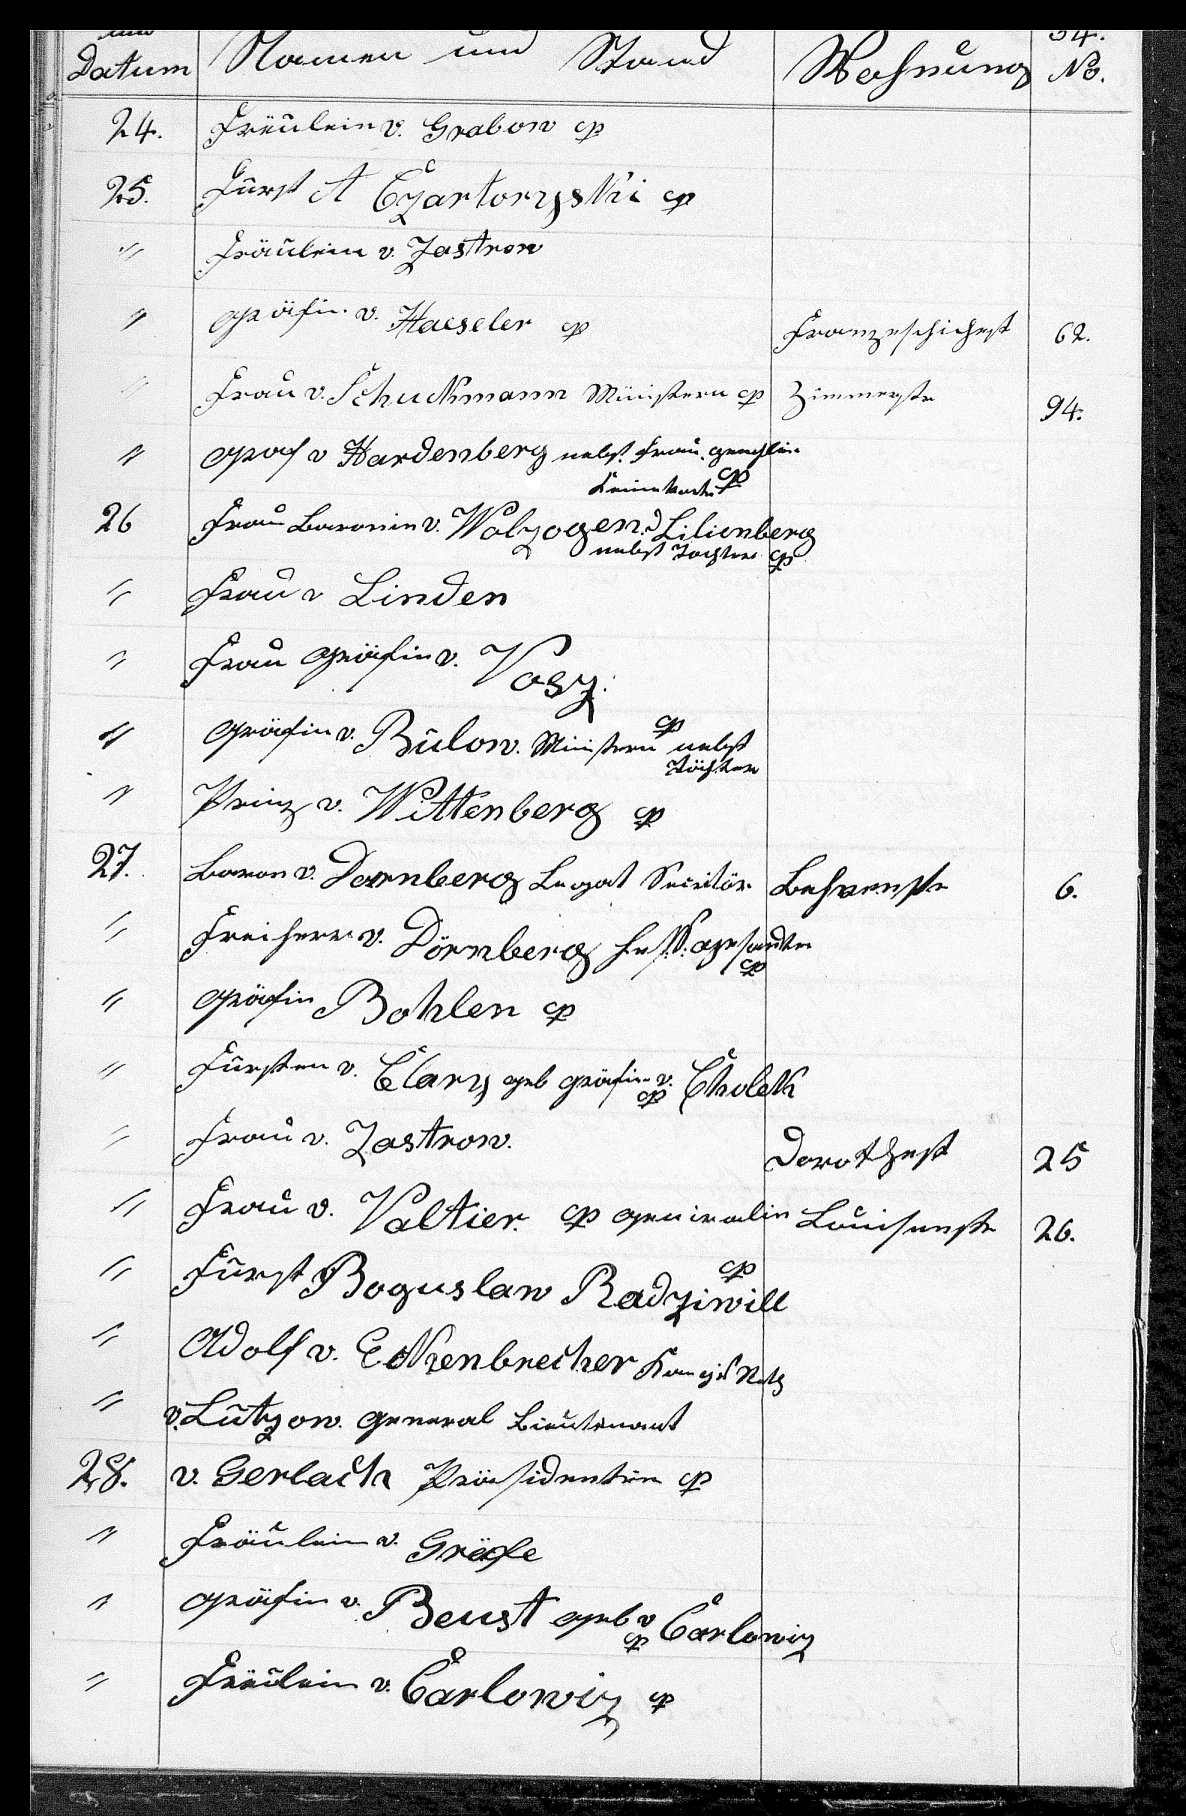 Datum Namen und Stand Wohnung No.
24. Fräulein v. Grabow cp
25. Fürst A Czartoryski cp
" Fräulein v. Zastrow
" Gräfin v. Haeseler cp 62.
" Frau v. Schuckmann Ministern cp Zimmerstr 94.
" Graf v Hardenberg nebst Frau Gemahlin
cp
26 Frau Baronin v. Wolzogen Lilienberg
nebst Tochter cp
" Frau v Linden
" Frau Gräfin v. Vosz.
" Gräfin v. Bülow. Ministern cp nebst
Töchter
" Prinz v. Wittenberg cp
27. Baron v. Dornberg Legat Secretär Behrenstr 6.
" Freiherr v. Dörnberg Gesandter
cp
" Gräfin Bohlen cp
" Fürsten v. Clary geb Gräfin v. Cholek
cp
" Frau v. Zastrow. Dorothest 25
" Frau v. Valtier. cp Generalin Louisenstr 26.
" Fürst Boguslaw Radziwill cp
" Adolf v. Eckenbrecher
" v. Lützow. General Lieutenant
28. v. Gerlach Präsidentin cp
" Fräulein v. Gräfe
" Gräfin v. Beust geb v Carlowiz
cp
" Fräulein v. Carlowiz cp